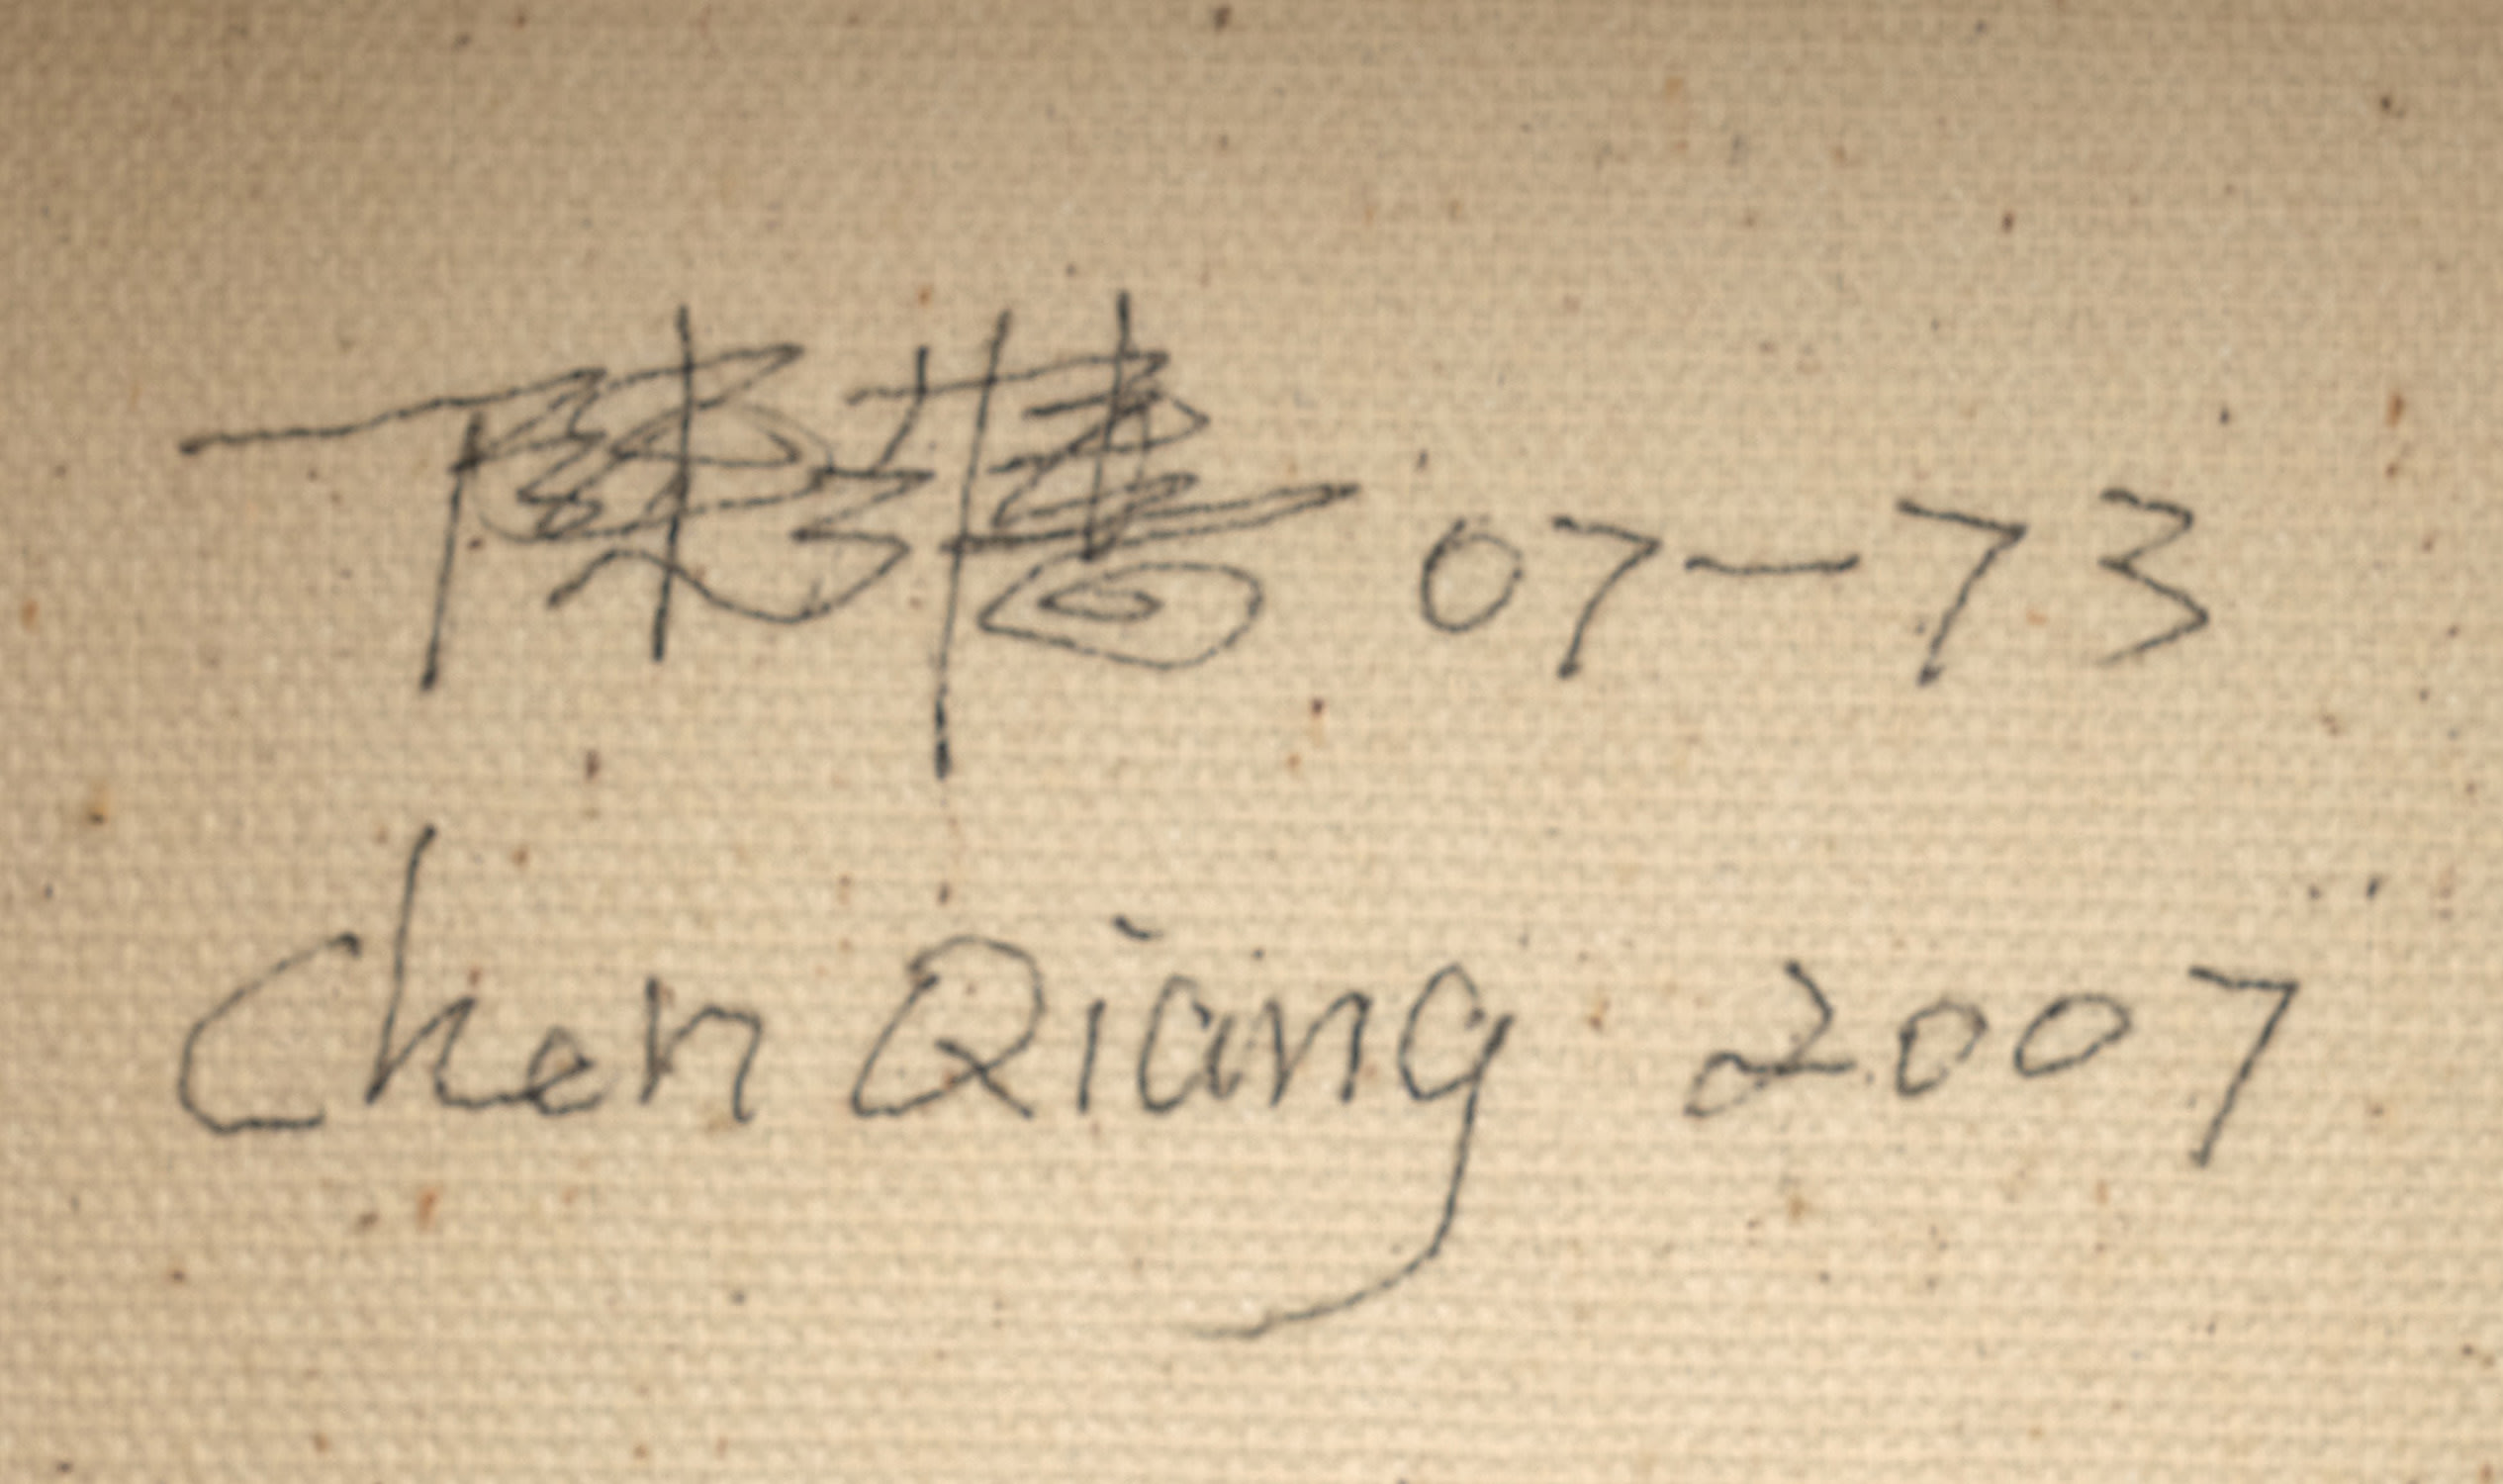 陳墻 07-73
Chen Qiang 2007